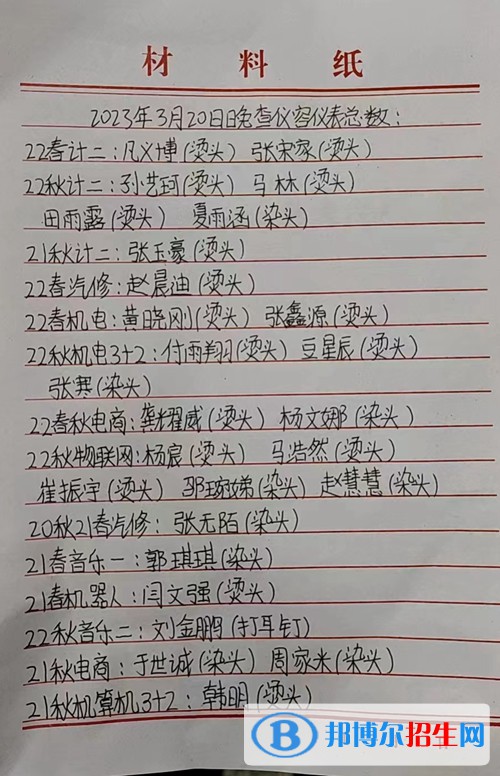 材料纸
2023年3月20日晚查仪容仪表总数:
22春计二:凡义博(烫头) 张宋家(烫头)
22秋计二:孙艺珂(烫头) 马林(烫头)
田雨露(烫头) 夏雨涵(染头)
21秋计二:张玉豪(烫头)
22春汽修:赵晨迪(烫头)
22春机电:黄晓刚(烫头) 张鑫源(烫头)
22秋机电3+2:付雨翔(烫头) 豆星辰(烫头)
张寒(染头)
22春秋电商:龚耀威(烫头) 杨文娜(染头)
22秋物联网:杨宸(烫头) 马浩然(烫头)
崔振宇(烫头) (染头) 赵慧慧(染头)
20秋21春汽修:张无陌(染头)
21春音乐一:郭琪琪(染头)
21春机器人:闫文强(烫头)
22秋音乐二:刘金鹏(打耳钉)
21秋电商:于世诚(染头) 周家米(染头)
21秋机算机3+2:韩明(烫头)
邦博尔招生网